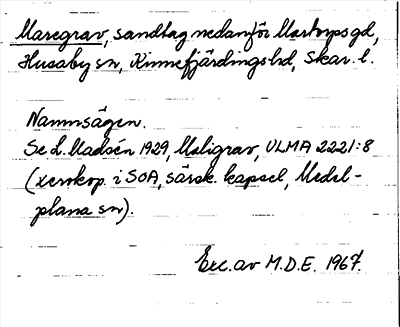 Maregrav, sandtag nedanför Martorpsgd,
Husaby sn, Kinnefjärdings hd, Skar. l.
Namnsägen.
Se L. Madsén 1929, Maligrav, ULMA 2221:8
(xerokop. i SOA, särsk. kapsel, Medel-
plana sn).
Exc. av M.D.E. 1967.